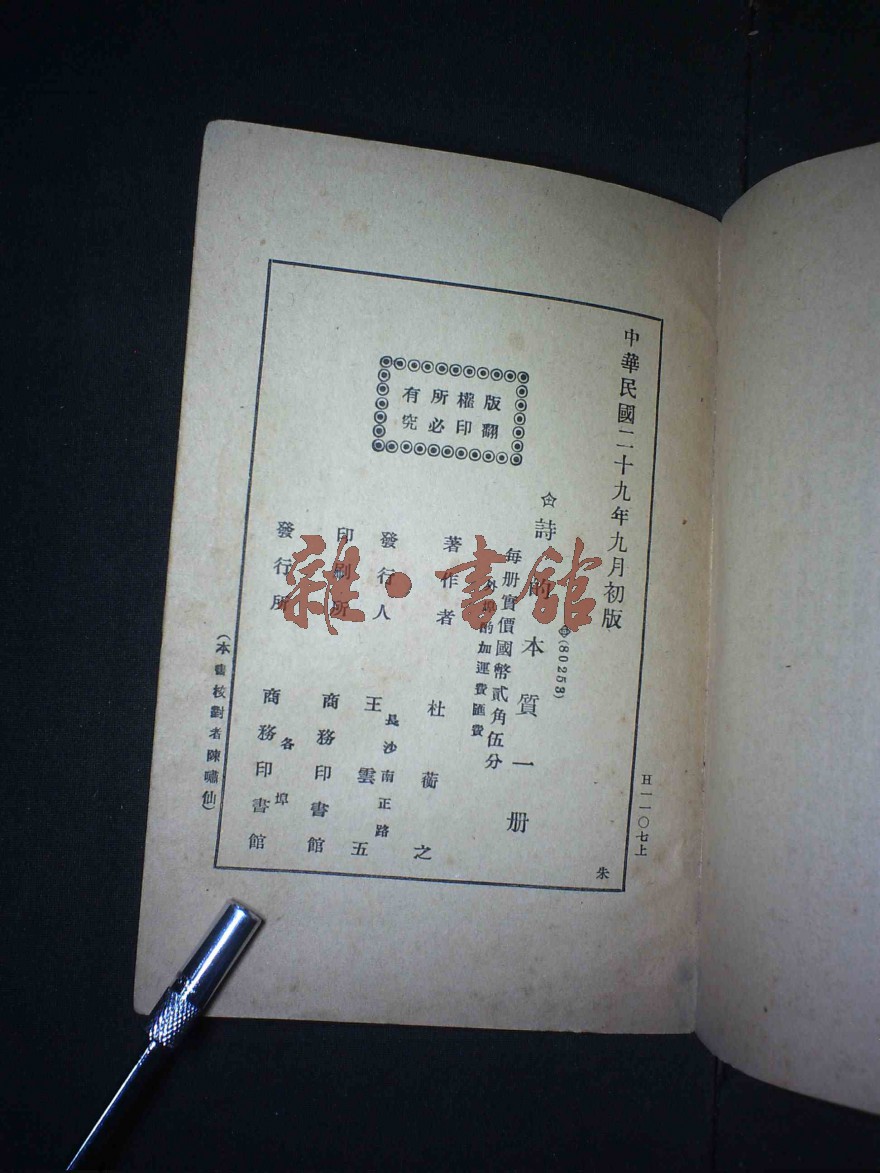 中華民國二十九年九月初版
H一一〇七上
(80253)
詩的本質一册
每册實價國幣貳角伍分
外埠酌加運費匯費
著作者 杜蘅之
發行人 王雲五
長沙南正路
印刷所 商務印書館
發行所 商務印書館
各埠
(本書校對者陳嘯仙)
版權所有
翻印必究
朱
雜·書館